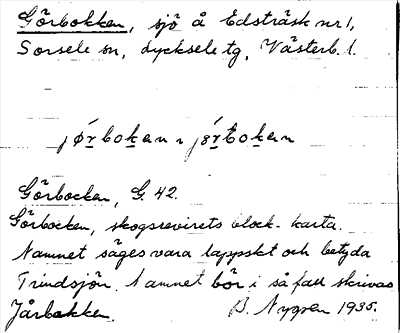 Görbokken, sjö å Edsträsk nr 1,
Sorsele sn, Lycksele tg, Västerb. l.
jǿrbokan, jørbokan
Görbocken, G. 42.
Görbocken, skogsrevirets block-karta.
Namnet säges vara lappskt och betyda
Trindsjön. Namnet bör i så fall skrivas
Jårbokken. B. Nygren 1935.